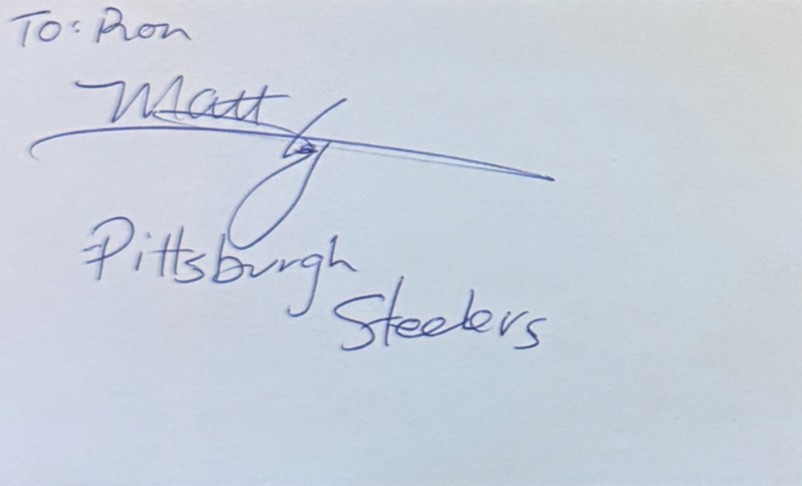 To: Ron
Matt
Pittsburgh
Steelers